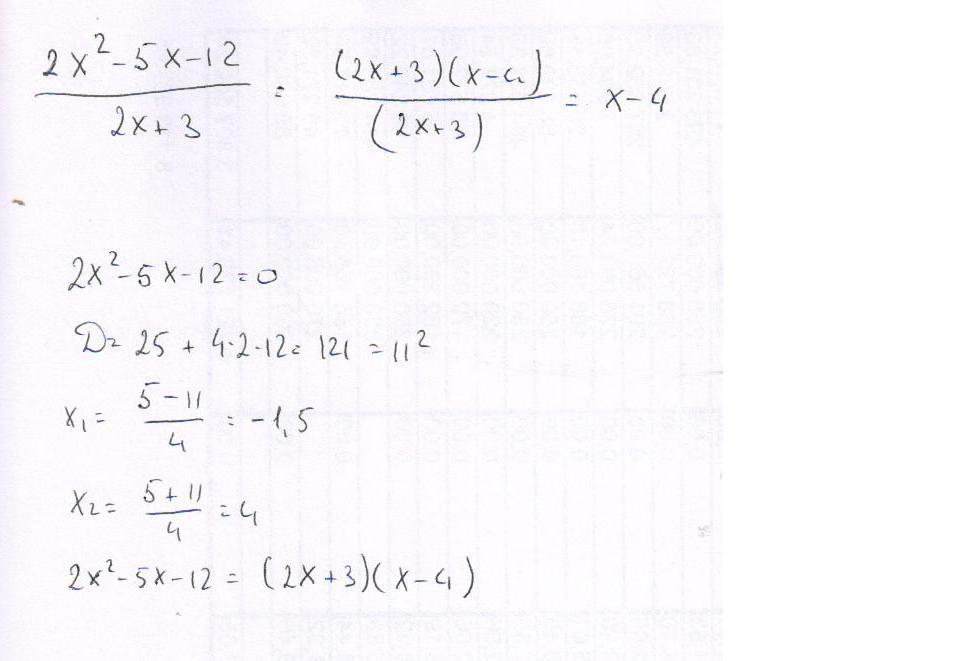 (2x²-5x-12)/(2x+3) = ((2x+3)(x-4))/((2x+3)) = x-4
2x²-5x-12=0
D= 25 + 4·2·12= 121 = 11²
x₁= (5-11)/4 = -1,5
x₂= (5+11)/4 = 4
2x²-5x-12 = (2x+3)(x-4)